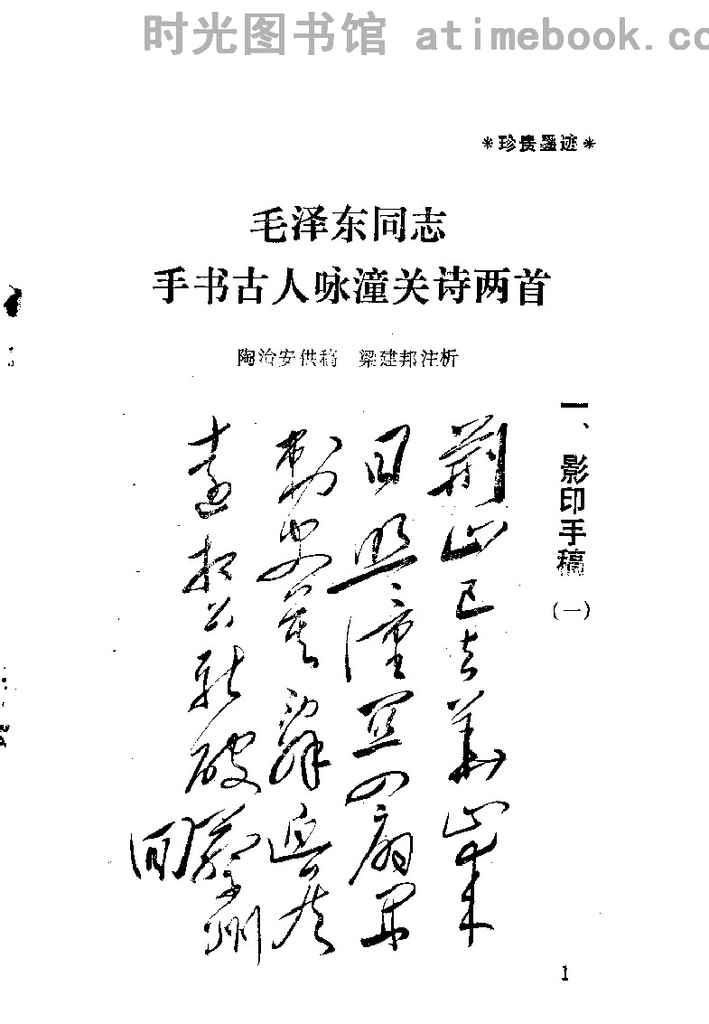 时光图书馆 atimebook.co
*珍贵墨迹*
毛泽东同志
手书古人咏潼关诗两首
陶治安供稿 梁建邦注析
一、影印手稿(一)
荆山已去華山来
日照潼関四扇開
刺史莫辭迎候
遠相公新破蔡州
回
1